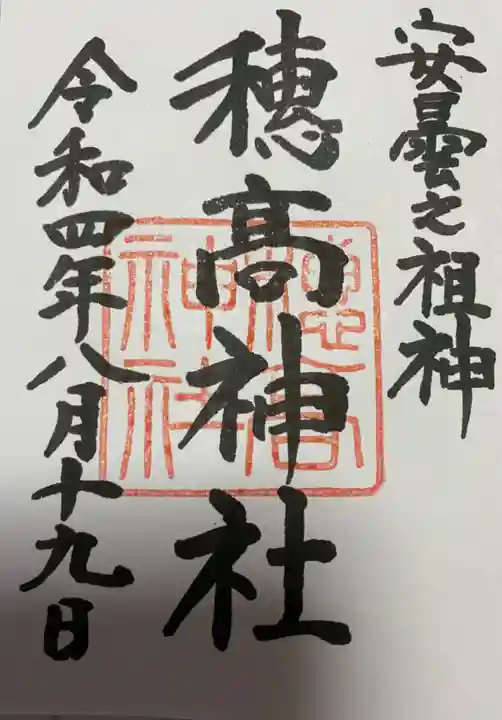 安曇之祖神
穂髙神社
令和四年八月十九日
穂高神社